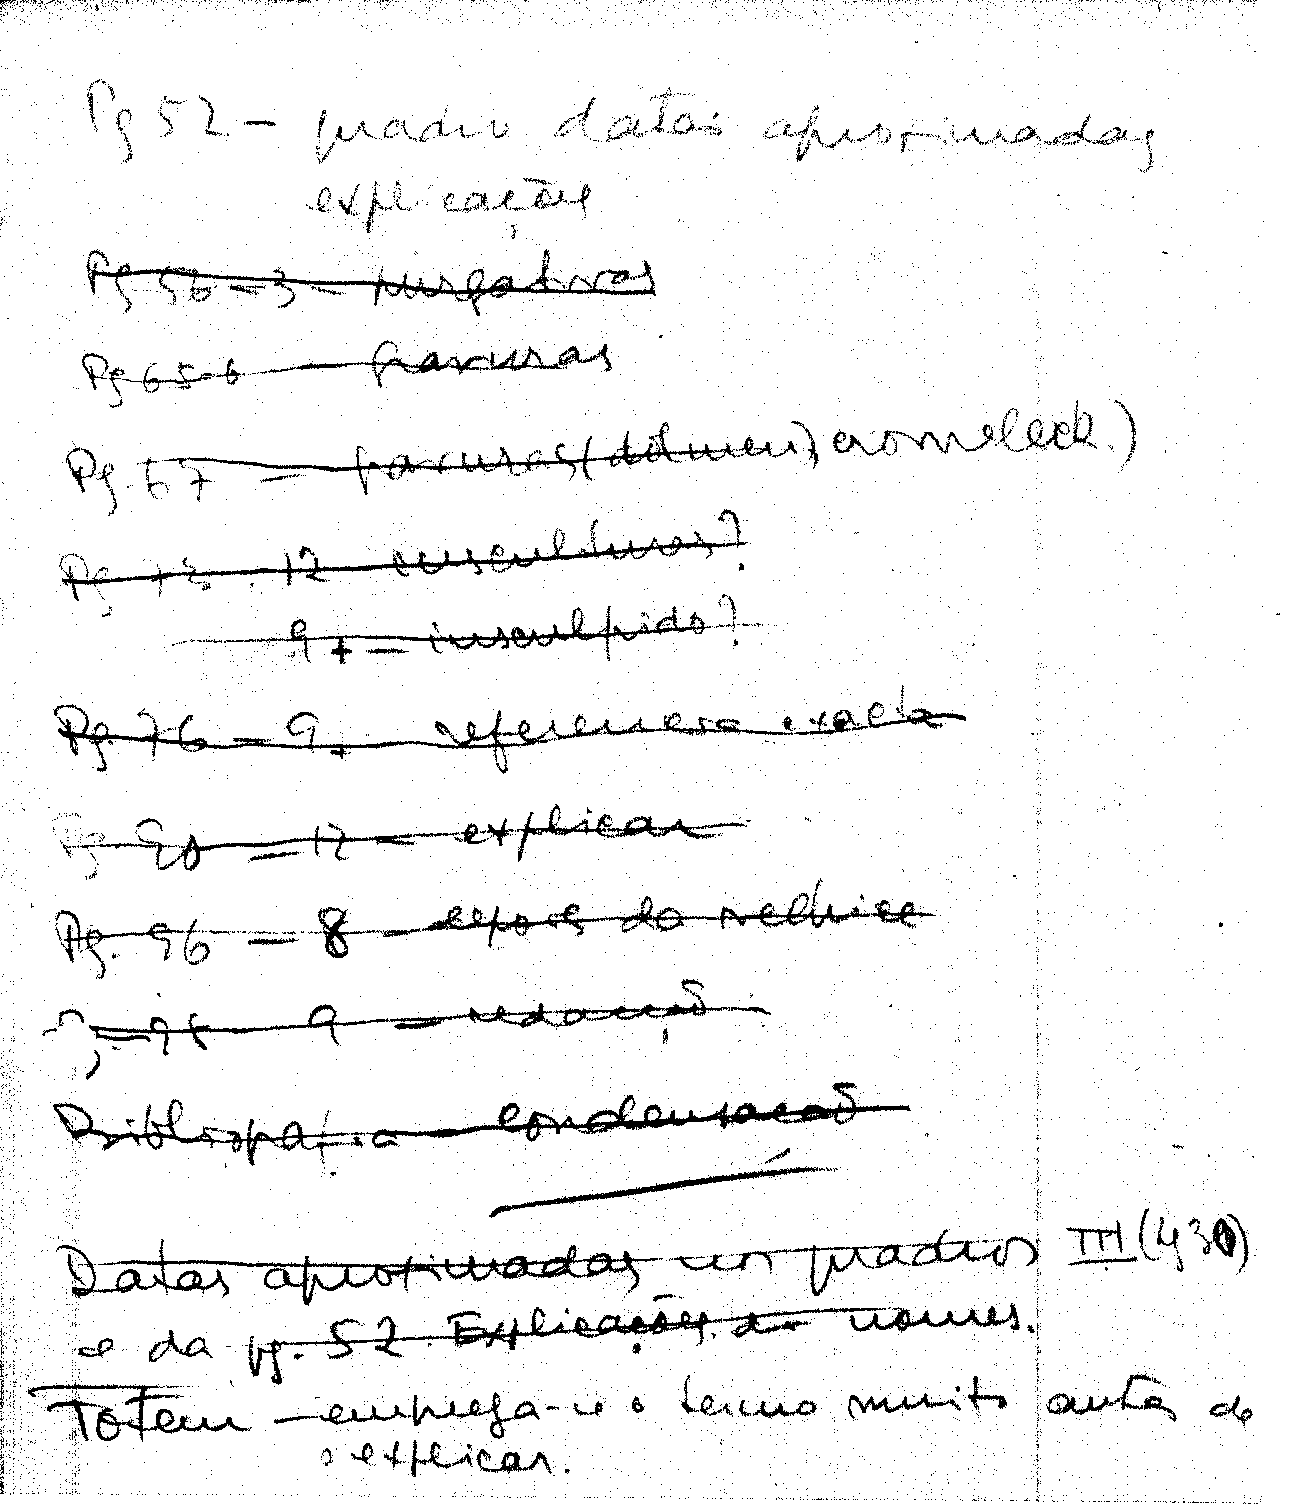 Pg 52 - quadro datas aproximadas
explicações
Pg 56 - 3 - purgativas
Pg 65-6 - gravuras
Pg. 67 - gravuras (dólmen, cromelech.)
Pg. 73 - 12 insculturas?
9+ - insculpido?
Pg. 76 - 9+ referencia exacta
Pg 90 - 12 - explicar
Pg. 96 - 8 - do velhice
9 - redacção
Bibliografia - condensação
Datas aproximadas nos quadros III (430)
e da pg. 52. Explicações de nomes.
Totem - emprega-se o termo muito antes de
o explicar.